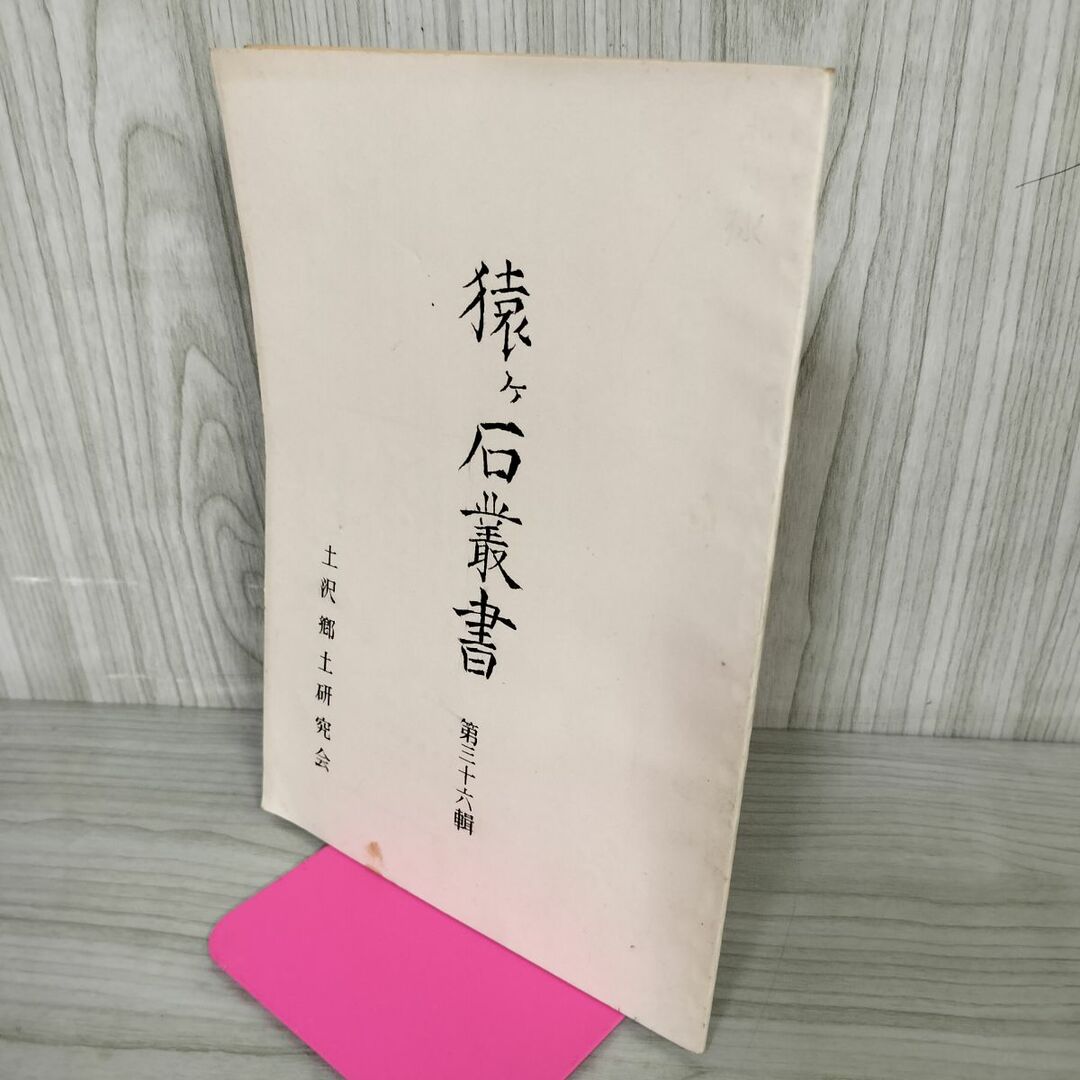 猿ヶ石叢書
第三十六輯
土沢郷土研究会